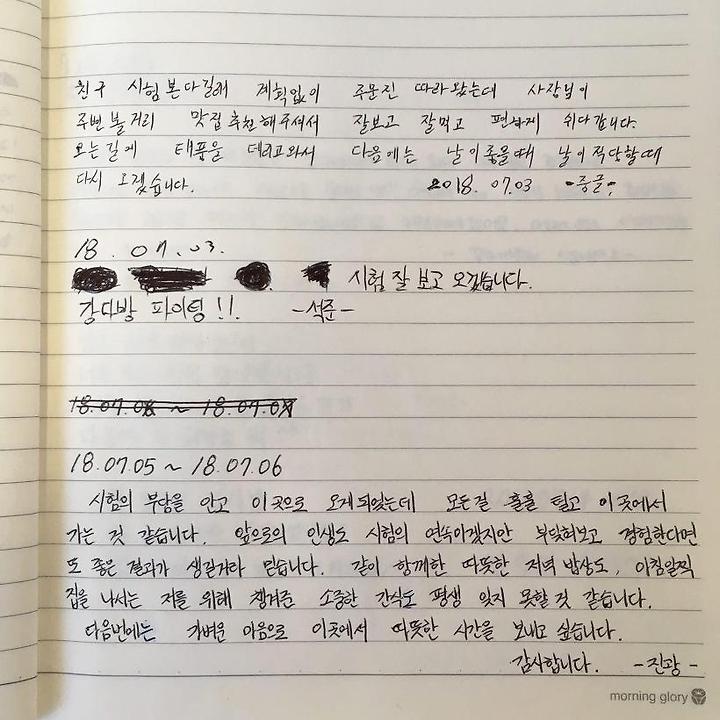 친구 시험본다길래 계획없이 주문진 따라왔는데 사장님이
주변볼거리 맛집추천해주셔서 잘보고 잘먹고 편하게 쉬다갑니다.
오는길에 태풍을 데리고와서 다음에는 날이좋을때 날이적당할때
다시 오겠습니다. 2018. 07.03
18. 07.03.
시험 잘 보고 오겠습니다.
강다방 파이팅!! -석준-
18.07.05 ~ 18.07.06
시험의 부담을 안고 이곳으로 오게되었는데 모든걸 훌훌 털고 이곳에서
가는 것 같습니다. 앞으로의 인생도 시험의 연속이겠지만 부딪혀보고 경험한다면
또 좋은 결과가 생길거라 믿습니다. 같이 함께한 따뜻한 저녁 밥상도, 아침일찍
집을 나서는 저를 위해 챙겨준 소중한 간식도 평생 잊지 못할것 같습니다.
다음번에는 가벼운 마음으로 이곳에서 따뜻한 시간을 보내고 싶습니다.
감사합니다. -진광-
morning glory